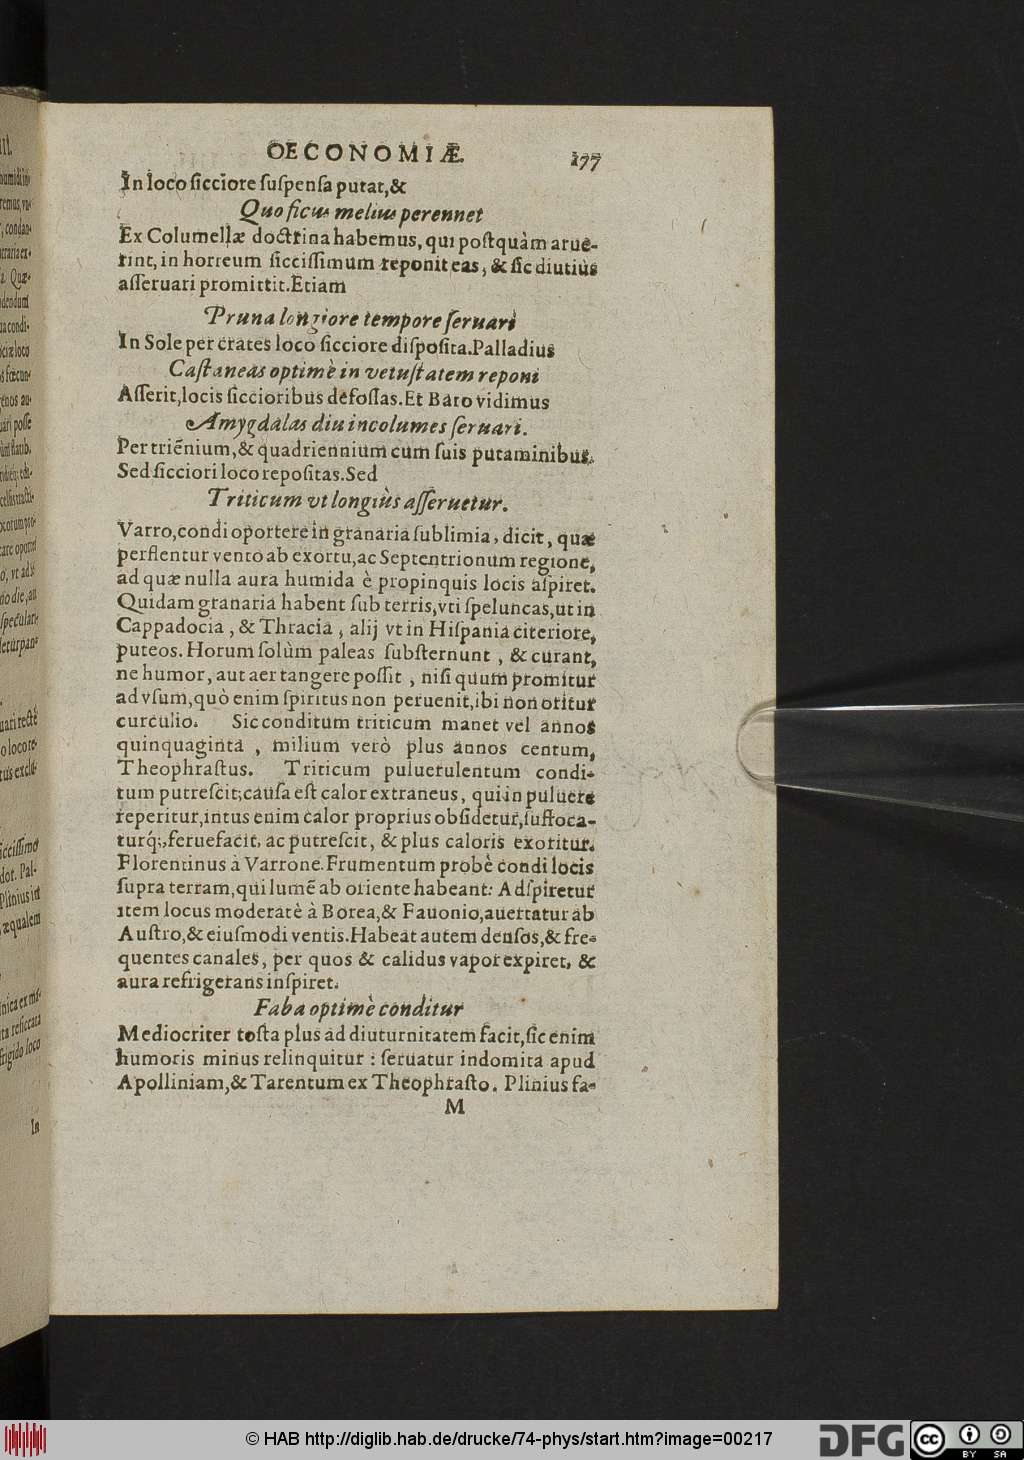 OECONOMIÆ. 177
In loco sicciore suspensa putat,&
Quo ficus melius perennet
Ex Columellæ doctrina habemus, qui postquàm arue-
rint, in horreum siccissimum reponit eas, & sic diutiùs
asseruari promittit. Etiam
Pruna longiore tempore seruari
In Sole per crates loco sicciore disposita. Palladius
Castaneas optimè in vetustatem reponi
Asserit, locis siccioribus defossas. Et Baro vidimus
Amygdalas diu incolumes seruari.
Per triẽnium, & quadriennium cum suis putaminibus.
Sed sicciori loco repositas. Sed
Triticum vt longiùs asseruetur.
Varro, condi oportere in granaria sublimia, dicit, quæ
perflentur vento ab exortu, ac Septentrionum regione,
ad quæ nulla aura humida è propinquis locis aspiret.
Quidam granaria habent sub terris, vti speluncas, ut in
Cappadocia, & Thracia, alij vt in Hispania citeriore,
puteos. Horum solùm paleas substernunt, & curant,
ne humor, aut aer tangere possit, nisi quum promitur
ad vsum, quò enim spiritus non peruenit, ibi non oritur
curculio. Sic conditum triticum manet vel annos
quinquaginta, milium verò plus annos centum,
Theophrastus. Triticum puluerulentum condi-
tum putrescit; causa est calor extraneus, qui in puluere
reperitur, intus enim calor proprius obsidetur, suffoca-
turq́;, feruefacit, ac putrescit, & plus caloris exoritur.
Florentinus à Varrone. Frumentum probè condi locis
supra terram, qui lumẽ ab oriente habeant: Adspiretur
item locus moderatè à Borea, & Fauonio, auertatur ab
Austro, & eiusmodi ventis. Habeat autem densos, & fre-
quentes canales, per quos & calidus vapor expiret, &
aura refrigerans inspiret.
Faba optimè conditur
Mediocriter tosta plus ad diuturnitatem facit, sic enim
humoris minus relinquitur: seruatur indomita apud
Apolliniam, & Tarentum ex Theophrasto. Plinius fa-
M
© HAB http://diglib.hab.de/drucke/74-phys/start.htm?image=00217
DFG
cc BY SA